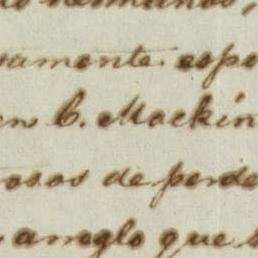 hermanos,
samente espe
en C. Mackin
osos de perde
arreglo que s